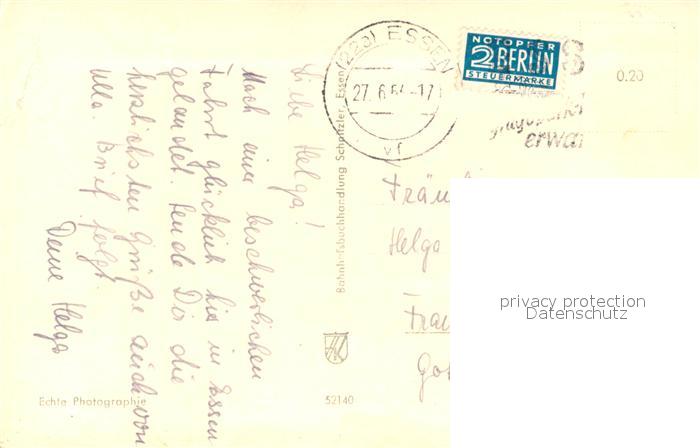 Liebe Helga!
Nach einer beschwerlichen
Fahrt glücklich hier in Essen
gelandet. Sende Dir die
herzlichsten Grüße auch von
Ulla. Brief folgt.
Deine Helga
Echte Photographie
52140
Bahnhofsbuchhandlung Schmitzler, Essen
(22a) ESSEN
27. 6. 54. -17
vf
NOTOPFER
2 BERLIN
STEUERMARKE
erwa
0.20
Fräu
Helga
Fran
Go
privacy protection
Datenschutz